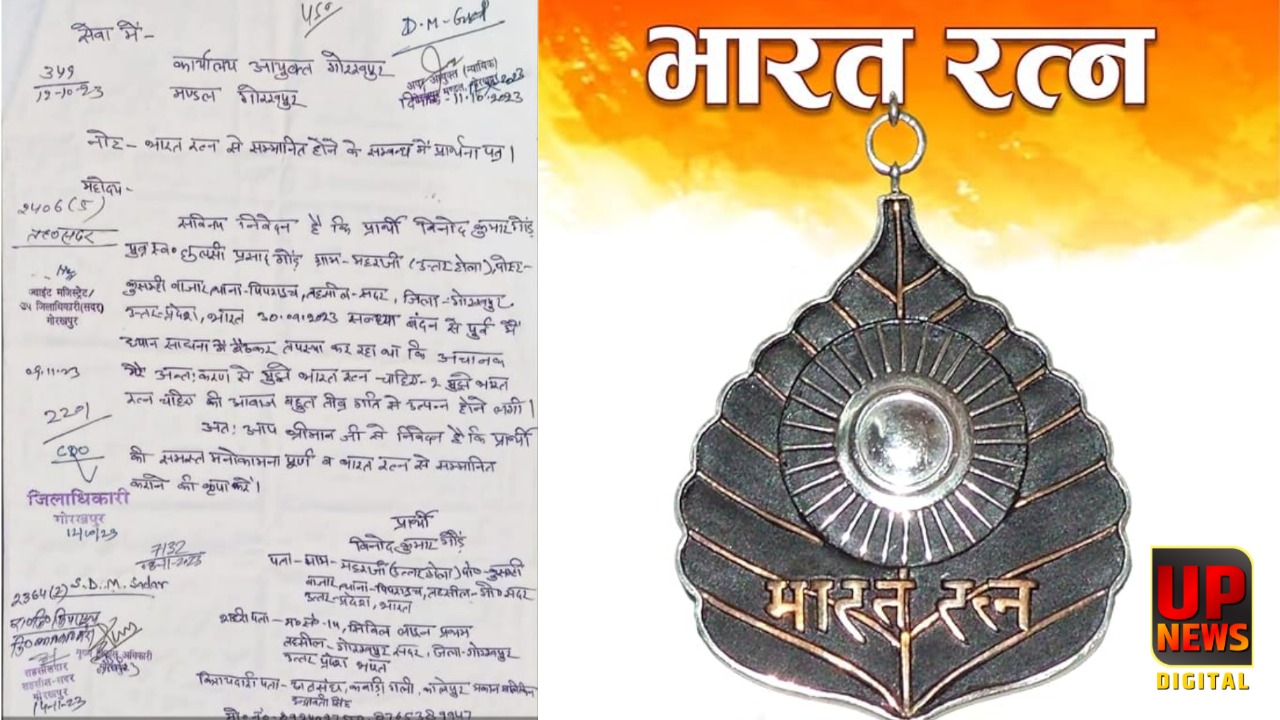 450
D.M. Gkp
सेवा में-
कार्यालय आयुक्त गोरखपुर
मण्डल गोरखपुर
349
12-10-23
अपर आयुक्त (न्यायिक)
गोरखपुर मण्डल, गोरखपुर
दिनांक-11.10.2023
नोट- भारत रत्न से सम्मानित होने के सम्बन्ध में प्रार्थना पत्र।
महोदय-
2406(5)
तह०सदर
सविनय निवेदन है कि प्रार्थी विनोद कुमार गौड़
पुत्र स्व० तुलसी प्रसाद गौड़ ग्राम-महराजी (उत्तर टोला), पोस्ट-
कुसम्ही बाजार, थाना-पिपराइच, तहसील-सदर, जिला-गोरखपुर,
उत्तर-प्रदेश, भारत 30.09.2023 सन्ध्या बंदन से पूर्व में
ध्यान साधना में बैठकर तपस्या कर रहा था कि अचानक
मेरे अन्त:करण से मुझे भारत रत्न-चाहिए-२ मुझे भारत
रत्न चाहिए की आवाज बहुत तीव्र गति से उत्पन्न होने लगी।
अत: आप श्रीमान जी से निवेदन है कि प्रार्थी
की समस्त मनोकामना पूर्ण व भारत रत्न से सम्मानित
कराने की कृपा करें।
ज्वाइंट मजिस्ट्रेट/
उप जिलाधिकारी(सदर)
गोरखपुर
09.11.23
2201
CDO
जिलाधिकारी
गोरखपुर
12/10/23
प्रार्थी
विनोद कुमार गौड़
7132
पता-ग्राम-महराजी(उत्तर टोला) पो०-कुसम्ही
बाजार, थाना-पिपराइच, तहसील-गो० सदर
उत्तर-प्रदेश, भारत
2364(2) S.D.M. Sadar
शहरी पता- म०नं०-14, सिविल लाइन प्रथम
तहसील-गोरखपुर सदर, जिला-गोरखपुर
उत्तर प्रदेश भारत
मुख्य विकास अधिकारी
गोरखपुर
तहसीलदार
तहसील-सदर
गोरखपुर
14-11-23
किरायदारी पता-
भारत रत्न
भारत रत्न
UP
NEWS
DIGITAL